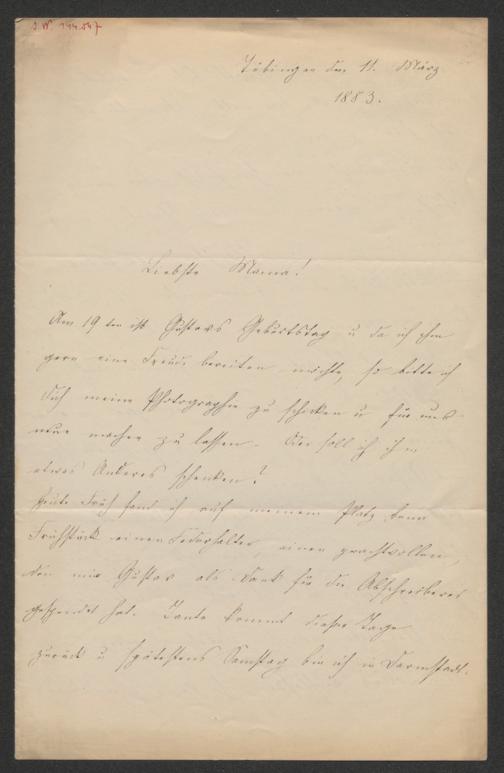 J. N. 144.547
Tübingen den 11. März
1883.
Liebste Mama!
Am 19ten ist Gustavs Geburtstag u da ich ihm
gern eine Freude bereiten möchte, so bitte ich
Dich meine Photographie zu schicken u für uns
neue machen zu lassen. Oder soll ich ihm
etwas Anderes schenken?
Heute Früh fand ich auf meinem Platz beim
Frühstück einen Federhalter, einen prachtvollen,
den mir Gustav als Dank für die Abschreiberei
gespendet hat. Tante kommt dieser Tage
zurück u spätestens Samstag bin ich in Darmstadt.